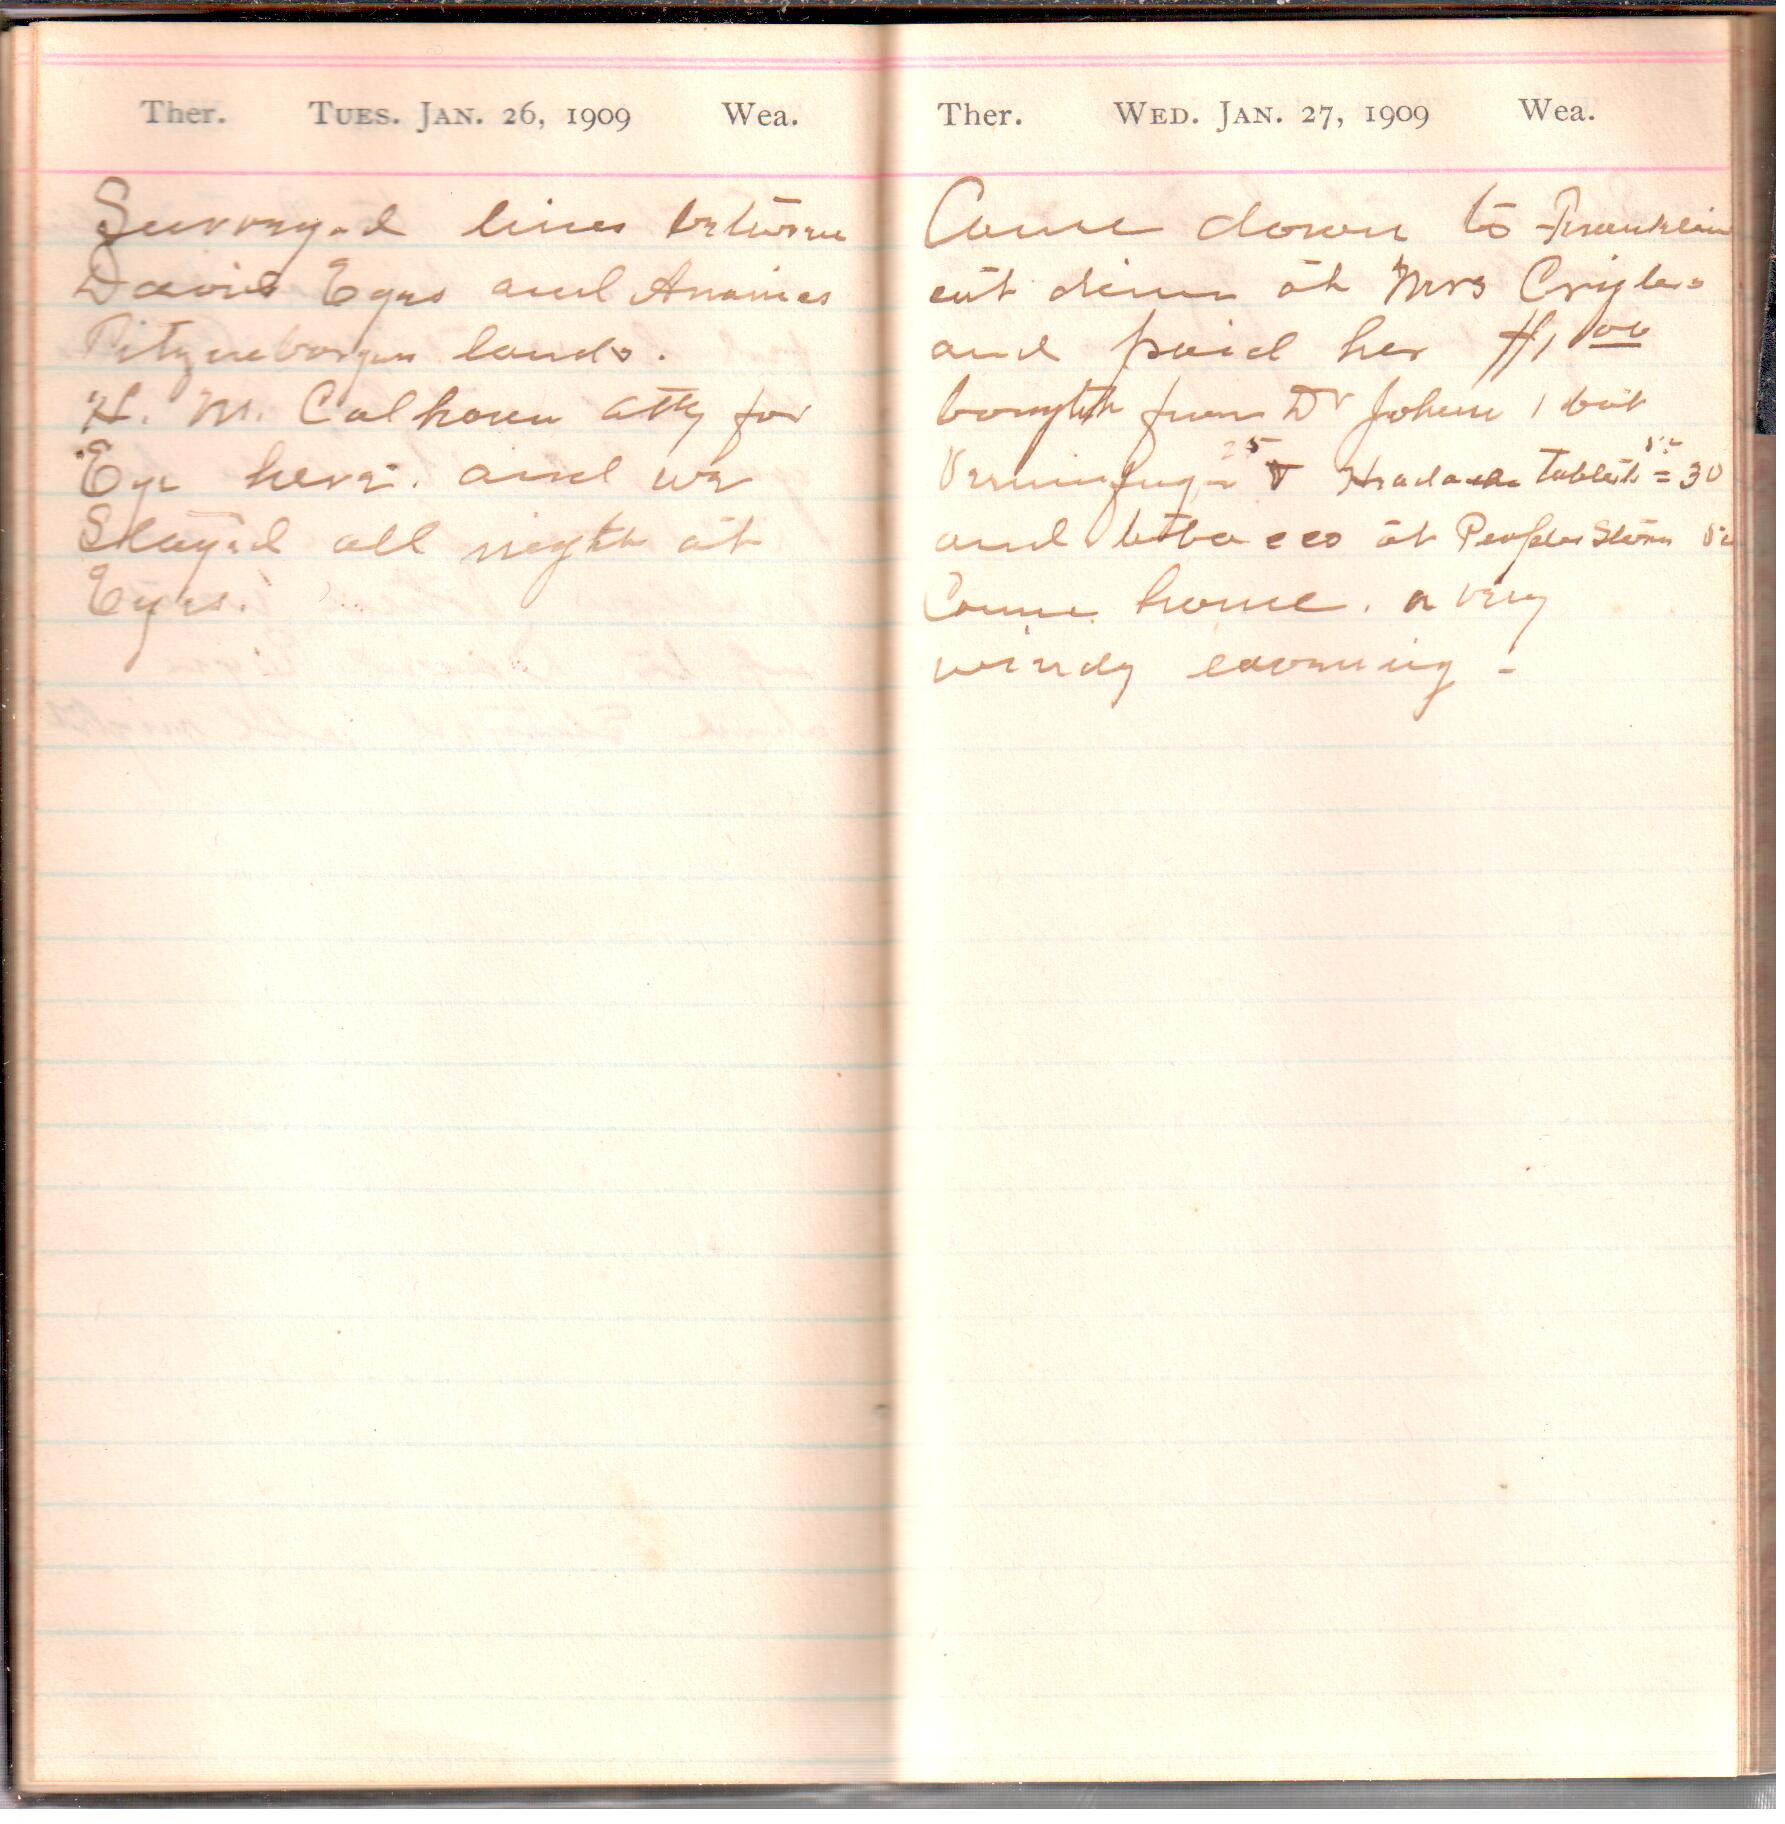 Ther. TUES. JAN. 26, 1909 Wea.
Surveyed lines between
David Eyes and Anamies
lands.
H. M. Calhoun atty for
Eye here. and we
Stayed all night at
Eyes.
Ther. WED. JAN. 27, 1909 Wea.
Came down to Franklin
eat dinner at Mrs Criglers
and paid her $1 00
bought from Dr Johnson 1 bot
Vermifuge 25 & Headache Tablets = 30
and tobacco at Peoples Store
Came home. a very
windy evening -